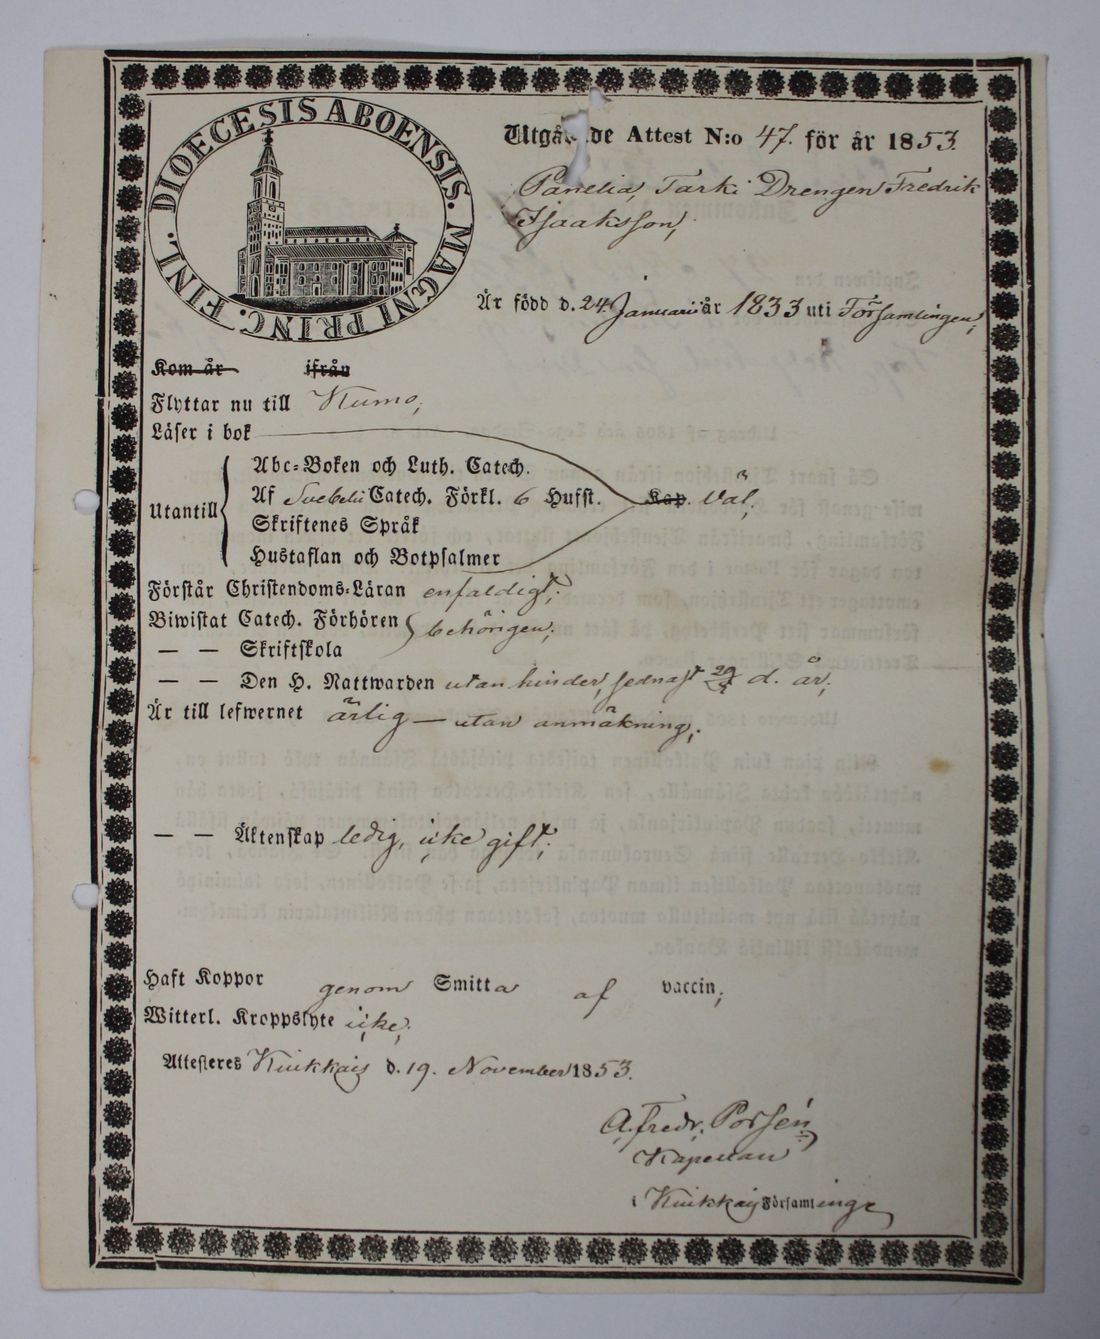 DIOECESIS ABOENSIS. MAGNI PRINC. FINL.
Utgående Attest N:o 47. för år 1853.
Panelia, Tarki Drengen Fredrik
Isaaksson,
Är född d. 24. Januari år 1833 uti Församlingen,
Kom år ifrån
Flyttar nu till Kumo,
Läser i bok
Utantill
Abc-Boken och Luth. Catech.
Af Svebelii Catech. Förkl. 6 Hufst. Kap. väl,
Skriftenes Språk
Hustaflan och Botpsalmer
Förstår Christendoms-Läran enfaldigt,
Biwistat Catech. Förhören behörigen,
— — Skriftskola
— — Den H. Nattwarden utan hinder, sednast d. år,
Är till lefwernet ärlig — utan anmäkning,
— — Äktenskap ledig, icke gift,
Haft Koppor genom Smitta af vaccin,
Witterl. Kroppslyte icke,
Attesteres Kiukkais d. 19. November 1853.
A. Fredr. Porsén
Kapellan
i Kiukkais Församlinge